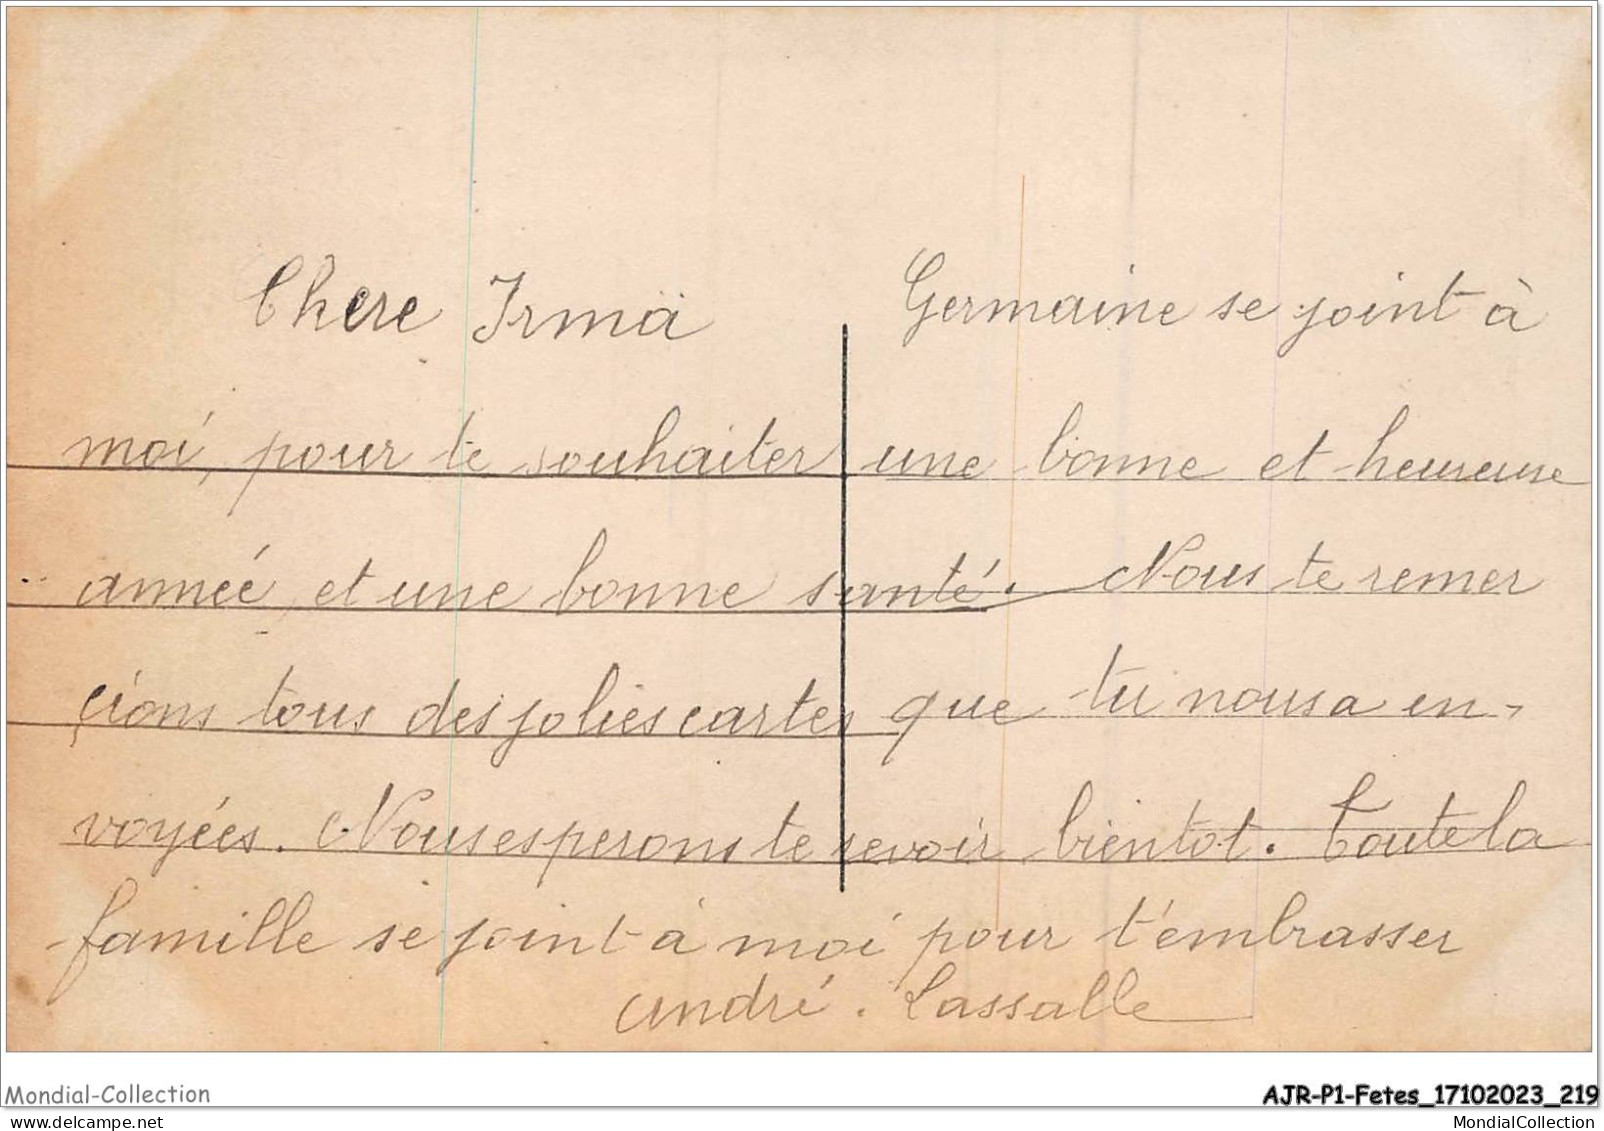 Chere Irma Germaine se joint à
moi, pour te souhaiter une bonne et heureuse
année et une bonne santé. Nous te remer
çions tous des jolies cartes que tu nous a en-
voyées. Nous esperons te revoir bientot. Toute la
famille se joint à moi pour t'embrasser
André. Lassalle
Mondial-Collection AJR-P1-Fetes_17102023_219
mondialcollection.com MondialCollection